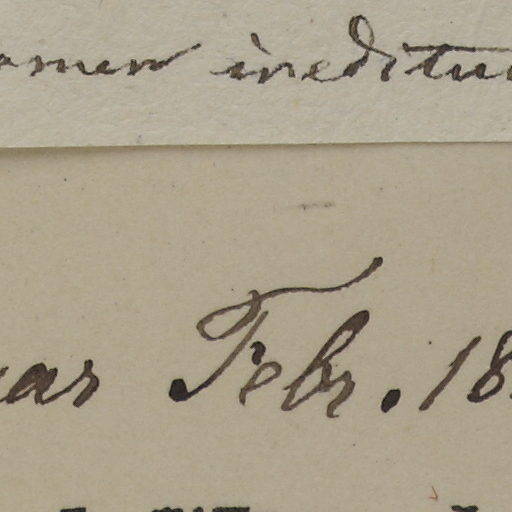 omen ineditu
uar Febr. 18